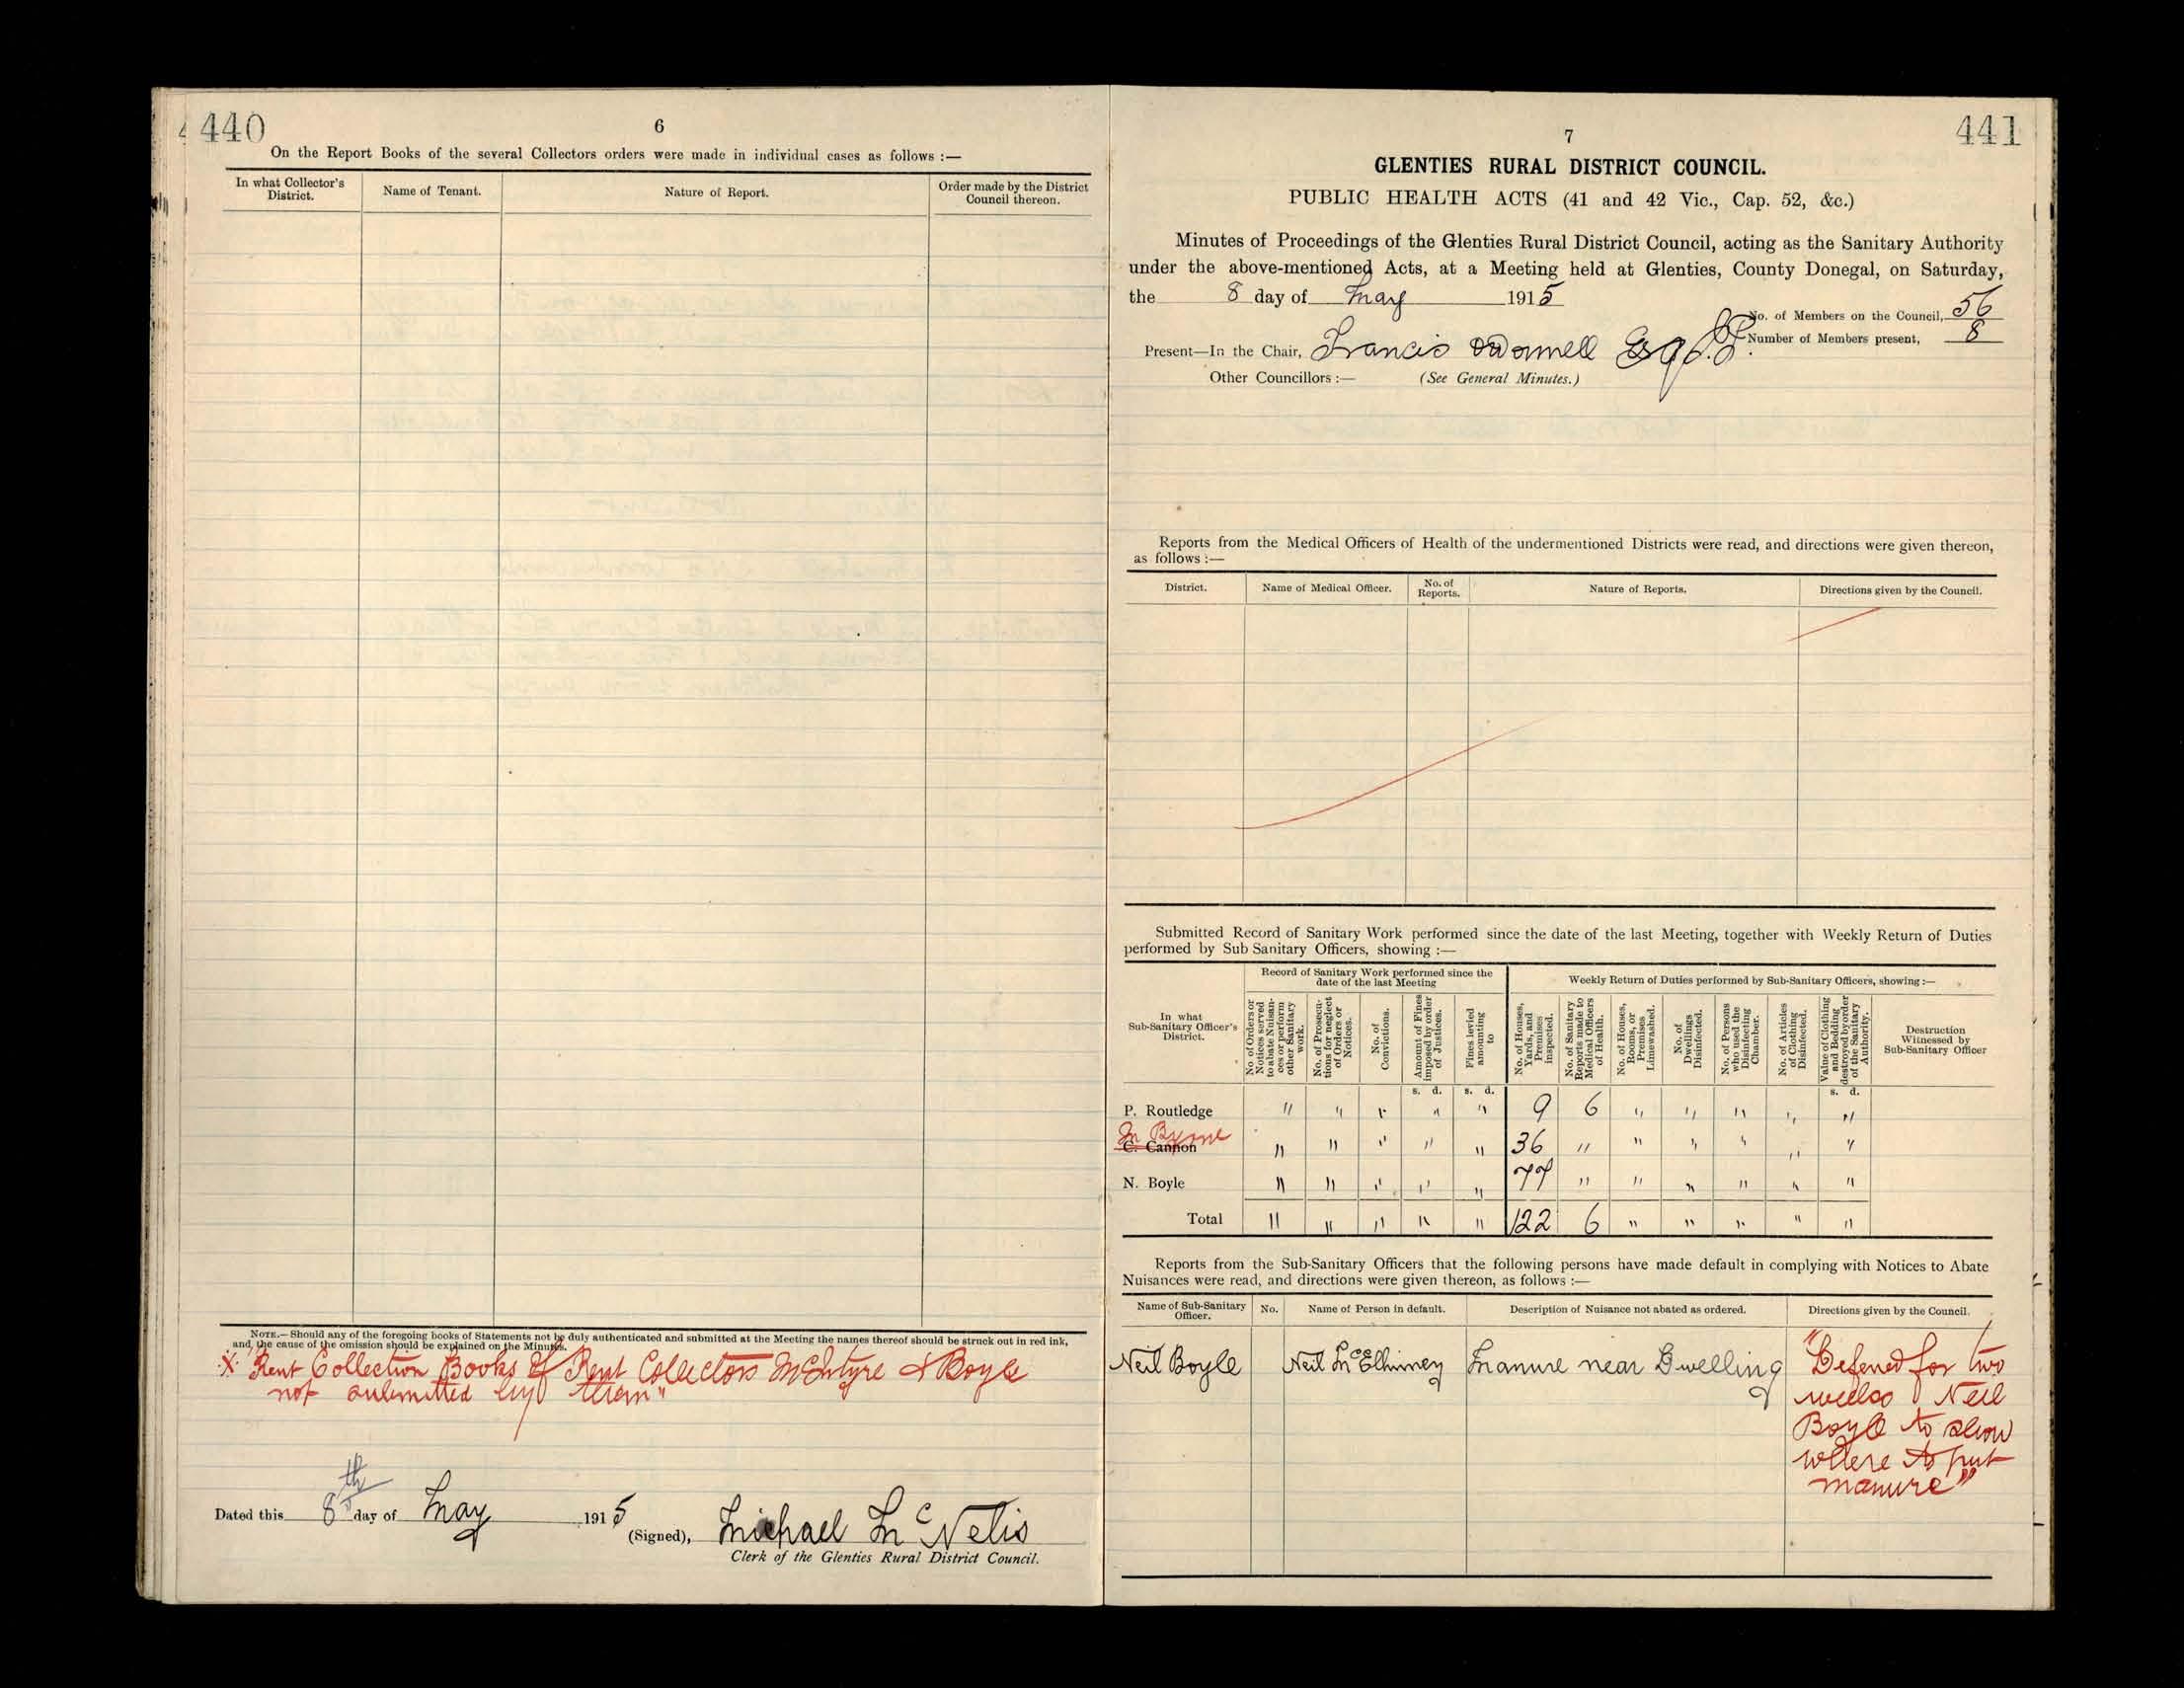 440
6
On the Report Books of the several Collectors orders were made in individual cases as follows :—
In what Collector's District. Name of Tenant. Nature of Report. Order made by the District Council thereon.
NOTE.—Should any of the foregoing books of Statements not be duly authenticated and submitted at the Meeting the names thereof should be struck out in red ink,
and the cause of the omission should be explained on the Minutes.
X Rent Collection Books of Rent Collectors McEntyre & Boyle
not submitted by them"
Dated this 8th day of May 1915
(Signed), Michael McNelis
Clerk of the Glenties Rural District Council.
441
7
GLENTIES RURAL DISTRICT COUNCIL.
PUBLIC HEALTH ACTS (41 and 42 Vic., Cap. 52, &c.)
Minutes of Proceedings of the Glenties Rural District Council, acting as the Sanitary Authority
under the above-mentioned Acts, at a Meeting held at Glenties, County Donegal, on Saturday,
the 8 day of May 1915
No. of Members on the Council, 56
Number of Members present, 8
Present—In the Chair, Francis O'Donnell Esq J.P.
Other Councillors :— (See General Minutes.)
Reports from the Medical Officers of Health of the undermentioned Districts were read, and directions were given thereon,
as follows :—
District. Name of Medical Officer. No. of Reports. Nature of Reports. Directions given by the Council.
Submitted Record of Sanitary Work performed since the date of the last Meeting, together with Weekly Return of Duties
performed by Sub Sanitary Officers, showing :—
Record of Sanitary Work performed since the date of the last Meeting
Weekly Return of Duties performed by Sub-Sanitary Officers, showing :—
In what Sub-Sanitary Officer's District.
No. of Orders or Notices served to abate Nuisances or perform other Sanitary work.
No. of Prosecutions for neglect of Orders or Notices.
No. of Convictions.
Amount of Fines imposed by order of Justices.
Fines levied amounting to
No. of Houses, Yards, and Premises inspected.
No. of Sanitary Reports made to Medical Officers of Health.
No. of Houses, Rooms, or Premises Limewashed.
No. of Dwellings Disinfected.
No. of Persons who used the Disinfecting Chamber.
No. of Articles of Clothing Disinfected.
Value of Clothing and Bedding destroyed by order of the Sanitary Authority.
Destruction Witnessed by Sub-Sanitary Officer
s. d. s. d. s. d.
P. Routledge " " " " " 9 6 " " " " "
M Byrne
C. Cannon " " " " " 36 " " " " " "
N. Boyle " " " " " 77 " " " " " "
Total " " " " " 122 6 " " " " "
Reports from the Sub-Sanitary Officers that the following persons have made default in complying with Notices to Abate
Nuisances were read, and directions were given thereon, as follows :—
Name of Sub-Sanitary Officer. No. Name of Person in default. Description of Nuisance not abated as ordered. Directions given by the Council.
Neil Boyle Neil McElhinney Manure near Dwelling "Defered for two
weeks Neil
Boyle to show
where to put
manure"